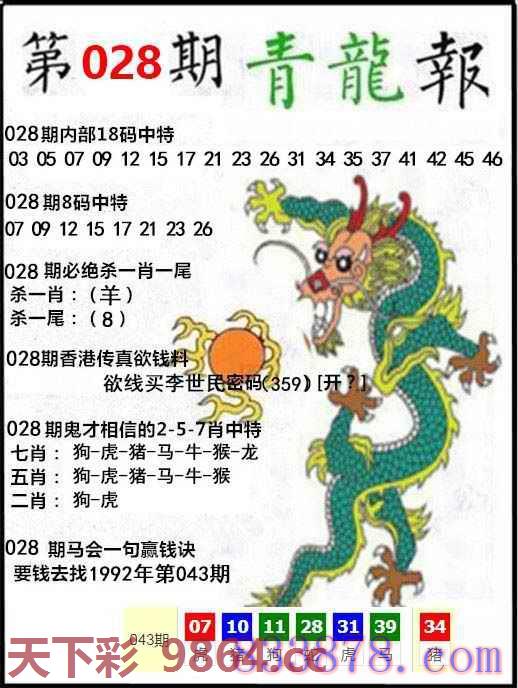 第028期青龍報
028期内部18码中特
03 05 07 09 12 15 17 21 23 26 31 34 35 37 41 42 45 46
028期8码中特
07 09 12 15 17 21 23 26
028期必绝杀一肖一尾
杀一肖：(羊)
杀一尾：(8)
028期香港传真欲钱料
欲线买李世民密码(359)[开?]
028期鬼才相信的2-5-7肖中特
七肖：狗-虎-猪-马-牛-猴-龙
五肖：狗-虎-猪-马-牛-猴
二肖：狗-虎
028期马会一句赢钱诀
要钱去找1992年第043期
043期 07 10 11 28 31 39 34
虎 猪 狗 蛇 虎 马 猪
天下彩 9864.cc